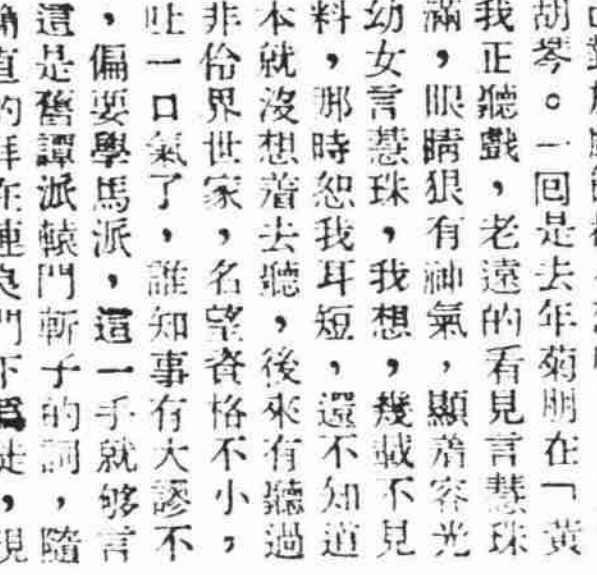 胡琴。一回是去年菊朋在「黃
我正聽戲，老遠的看見言慧珠
滿，眼睛狠有神氣，顯着容光
幼女言慧珠，我想，幾載不見
料，那時恕我耳短，還不知道
本就沒想着去聽，後來有聽過
非伶界世家，名望資格不小，
吐一口氣了，誰知事有大謬不
，偏要學馬派，這一手就够言
這是舊譚派轅門斬子的詞，隨